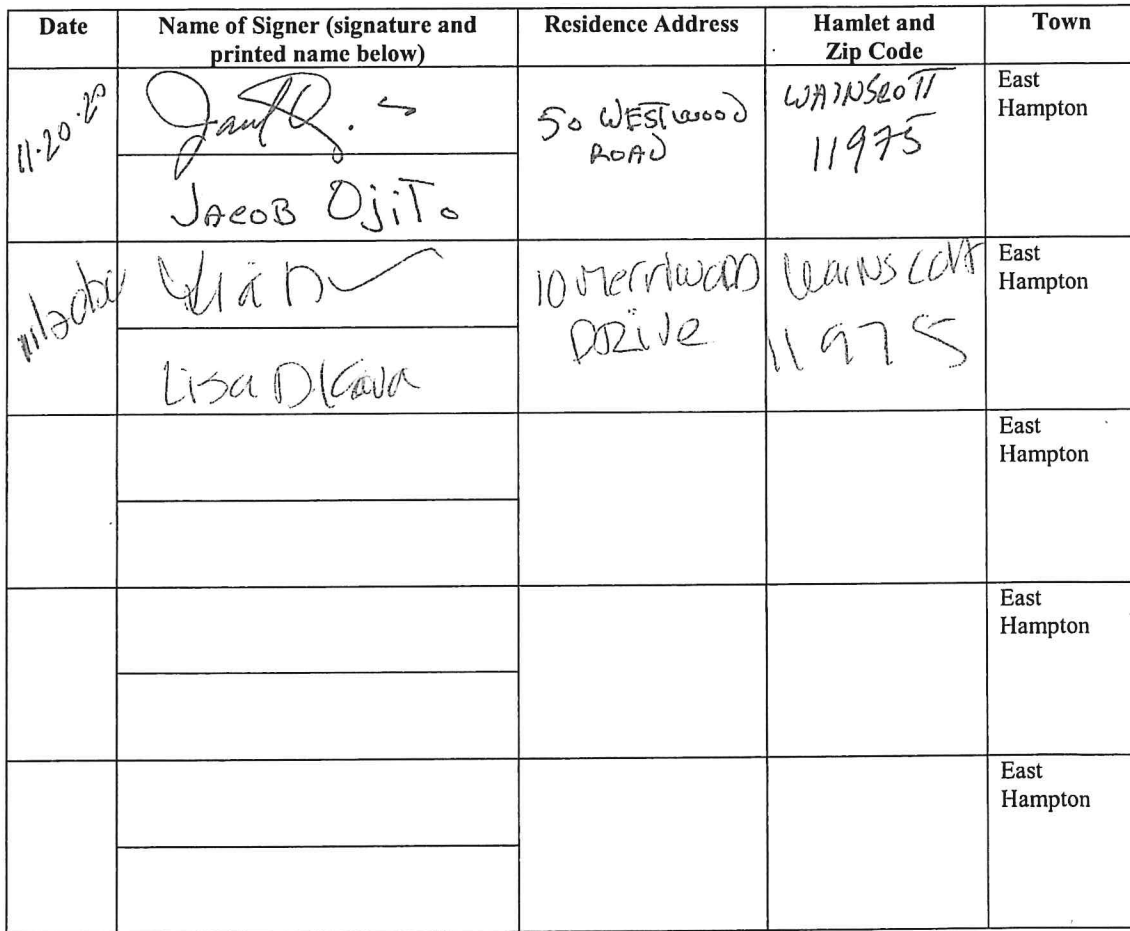 Date
Name of Signer (signature and
printed name below)
Residence Address
Hamlet and
Zip Code
Town
11.20.20
50 WESTWOOD
ROAD
WAINSCOTT
11975
East
Hampton
JACOB OjiTo
10 Merriwood
DRive
Wainscott
11975
East
Hampton
Lisa
East
Hampton
East
Hampton
East
Hampton